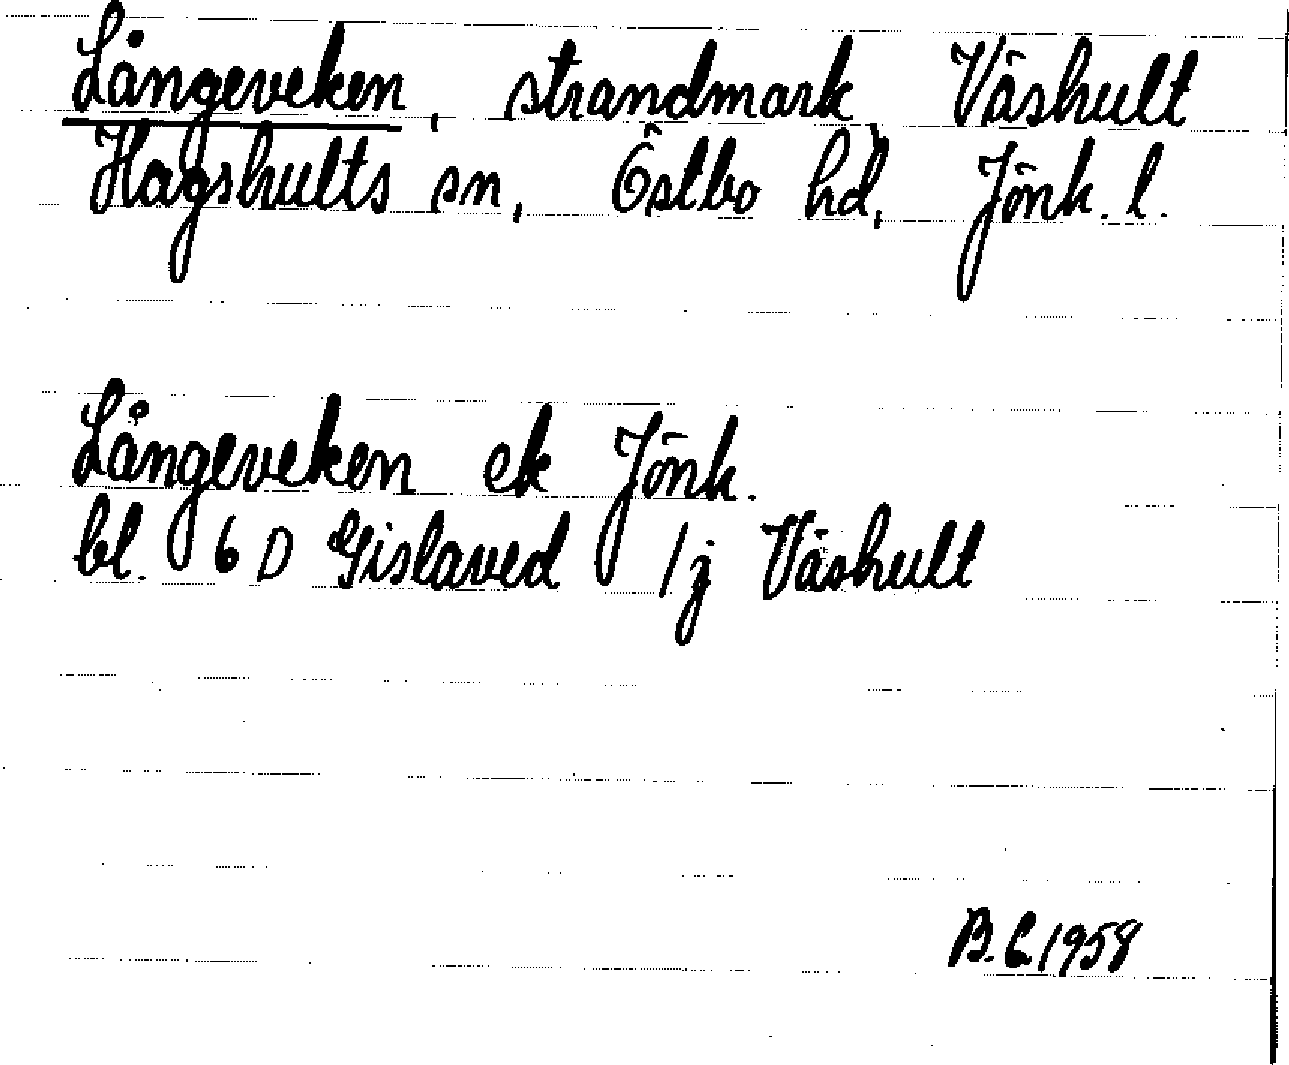 Långeveken, strandmark Våshult
Hagshults sn, Östbo hd, Jönk. l.
Långeveken ek Jönk.
bl. 6 D Gislaved 1j Våshult
B.E. 1958